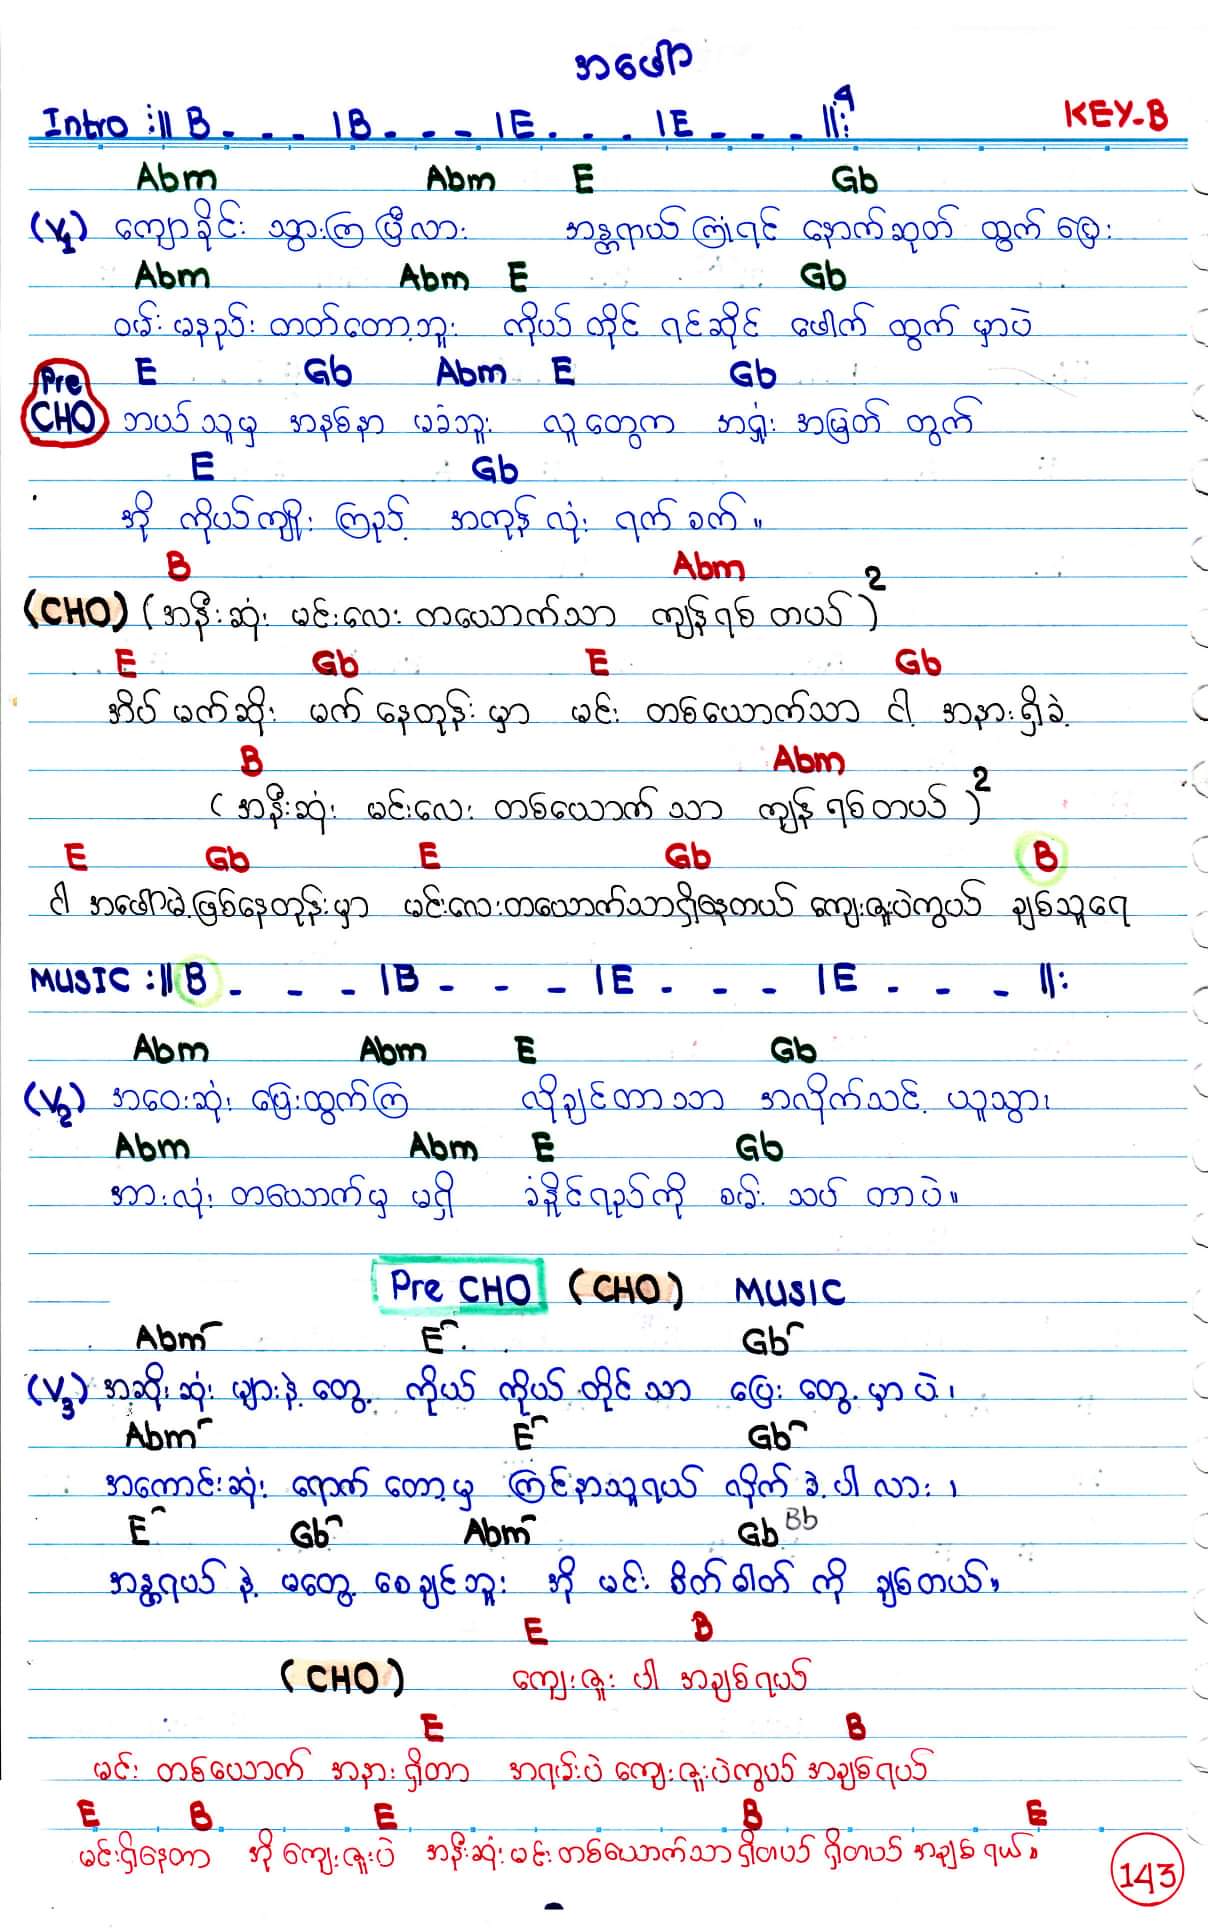 အဖော်
Intro :|| B - - - | B - - - | E - - - | E - - - ||: 4
KEY-B
Abm Abm E Gb
(V1) ကျောခိုင်း သွားကြပြီလား အန္တရာယ်ကြုံရင် နောက်ဆုတ် ထွက်ပြေး
Abm Abm E Gb
ဝမ်း မနည်း တတ်တော့ဘူး ကိုယ်တိုင် ရင်ဆိုင် ဖေါက်ထွက် မှာပဲ
E Gb Abm E Gb
Pre CHO ဘယ်သူမှ အနစ်နာ မခံဘူး လူတွေက အရှုံး အမြတ် တွက်
E Gb
အို ကိုယ်ကျိုး ကြည့် အကုန်လုံး ရက်စက် ။
B Abm
(CHO) (အနီးဆုံး မင်းလေး တယောက်သာ ကျန်ရစ်တယ်)2
E Gb E Gb
အိပ်မက်ဆိုး မက်နေတုန်းမှာ မင်း တစ်ယောက်သာ ငါ့ အနားရှိခဲ့
B Abm
(အနီးဆုံး မင်းလေး တစ်ယောက်သာ ကျန်ရစ်တယ်)2
E Gb E Gb B
ငါ အဖော်မဲ့ဖြစ်နေတုန်းမှာ မင်းလေးတယောက်သာရှိနေတယ် ကျေးဇူးပဲကွယ် ချစ်သူရေ
MUSIC :|| B - - - | B - - - | E - - - | E - - - ||:
Abm Abm E Gb
(V2) အဝေးဆုံး ပြေးထွက်ကြ လိုချင်တာသာ အလိုက်သင့် ယူသွား၊
Abm Abm E Gb
အားလုံး တယောက်မှ မရှိ ခံနိုင်ရည်ကို စမ်းသပ်တာပဲ။
Pre CHO (CHO) MUSIC
Abm E Gb
(V3) အဆိုးဆုံး များနဲ့တွေ့ ကိုယ် ကိုယ်တိုင်သာ ပြေးတွေ့မှာပဲ၊
Abm E Gb
အကောင်းဆုံး ရောက်တော့မှ ကြင်နာသူရယ် လိုက်ခဲ့ပါလား ၊
E Gb Abm Gb Bb
အန္တရယ်နဲ့ မတွေ့စေချင်ဘူး အို မင်း စိတ်ဓါတ်ကို ချစ်တယ်။
E B
(CHO) ကျေးဇူးပါ အချစ်ရယ်
E B
မင်း တစ်ယောက် အနားရှိတာ အရမ်းပဲ ကျေးဇူးပဲကွယ် အချစ်ရယ်
E B E B E
မင်းရှိနေတာ အို ကျေးဇူးပဲ အနီးဆုံးမင်းတစ်ယောက်သာရှိတယ် ရှိတယ် အချစ်ရယ်။
143